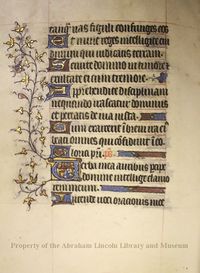 tanquam vas figuli confringes eos
Et nunc reges intelligite eru
dimini qui iudicatis terram
Servite domino in timore et
exultate ei cum tremore
Apprehendite disciplinam
nequando irascatur dominus
et pereatis de via iusta
Cum exarserit in brevi ira ei
beati omnes qui confidunt i eo
Gloria pri
Verba mea auribus percipe
domine intellige clamo
rem meum
Intende voci orationis mee
Property of the Abraham Lincoln Library and Museum